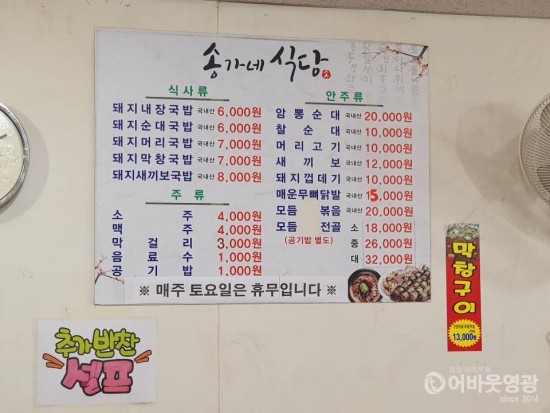 송가네 식당
식사류
돼지내장국밥 국내산 6,000원
돼지순대국밥 국내산 6,000원
돼지머리국밥 국내산 7,000원
돼지막창국밥 국내산 7,000원
돼지새끼보국밥 국내산 8,000원
주류
소주 4,000원
맥주 4,000원
막걸리 3,000원
음료수 1,000원
공기밥 1,000원
안주류
암뽕순대 국내산 20,000원
찰순대 국내산 10,000원
머리고기 국내산 10,000원
새끼보 국내산 12,000원
돼지껍데기 국내산 10,000원
매운무뼈닭발 국내산 15,000원
모듬볶음 국내산 20,000원
모듬전골 소 18,000원
(공기밥 별도) 중 26,000원
대 32,000원
※ 매주 토요일은 휴무입니다 ※
막창구이
13,000원
추가반찬
셀프
어바웃영광
since 2014